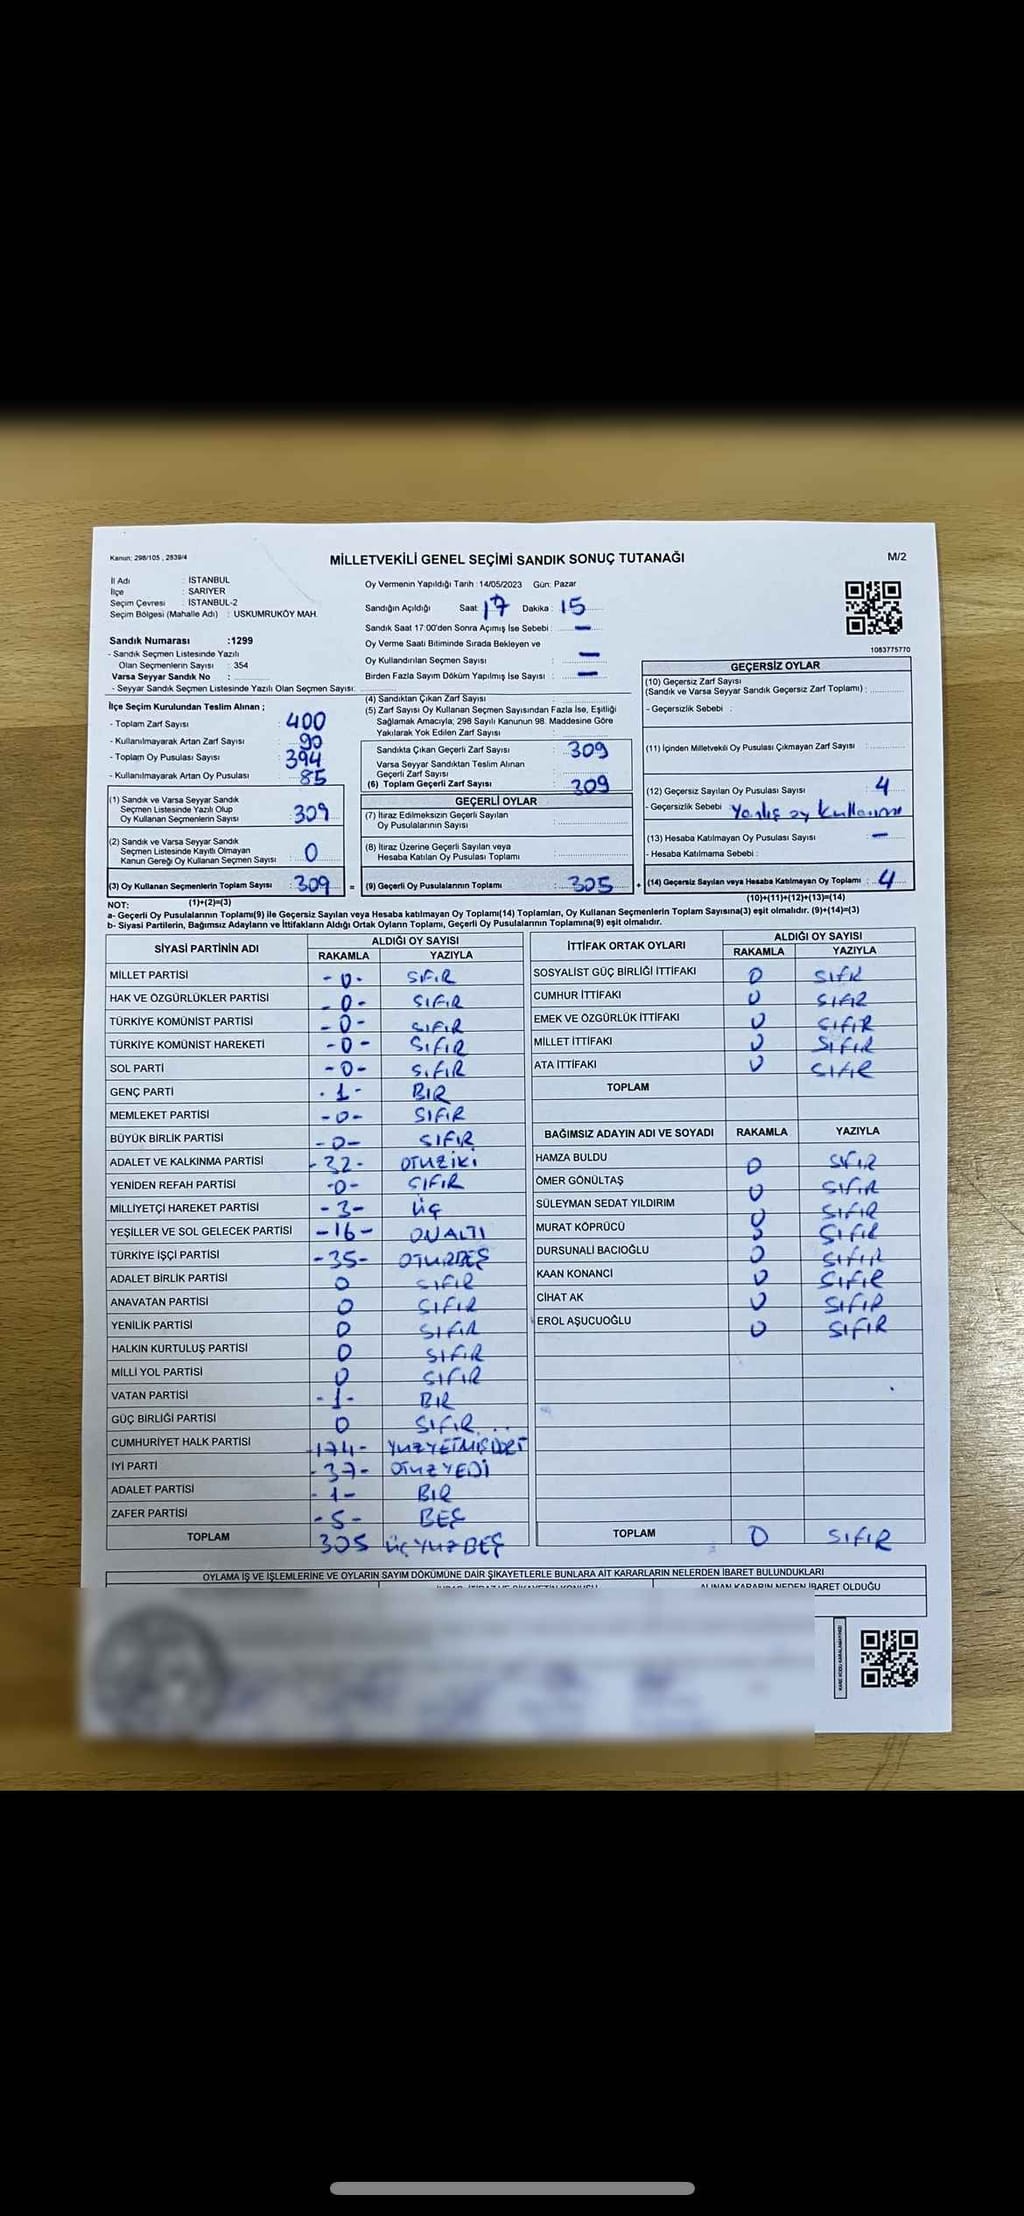 Kanun: 298/105 , 2839/4
MİLLETVEKİLİ GENEL SEÇİMİ SANDIK SONUÇ TUTANAĞI
M/2
İl Adı : İSTANBUL
İlçe : SARIYER
Seçim Çevresi : İSTANBUL-2
Seçim Bölgesi (Mahalle Adı) : USKUMRUKÖY MAH.
Sandık Numarası :1299
- Sandık Seçmen Listesinde Yazılı
Olan Seçmenlerin Sayısı : 354
Varsa Seyyar Sandık No :
- Seyyar Sandık Seçmen Listesinde Yazılı Olan Seçmen Sayısı:
Oy Vermenin Yapıldığı Tarih :14/05/2023 Gün: Pazar
Sandığın Açıldığı Saat: 17 Dakika: 15
Sandık Saat 17:00'den Sonra Açımış İse Sebebi : —
Oy Verme Saati Bitiminde Sırada Bekleyen ve
Oy Kullandırılan Seçmen Sayısı : —
Birden Fazla Sayım Döküm Yapılmış İse Sayısı : —
1083775770
İlçe Seçim Kurulundan Teslim Alınan ;
- Toplam Zarf Sayısı : 400
- Kullanılmayarak Artan Zarf Sayısı : 90
- Toplam Oy Pusulası Sayısı : 394
- Kullanılmayarak Artan Oy Pusulası : 85
(1) Sandık ve Varsa Seyyar Sandık
Seçmen Listesinde Yazılı Olup
Oy Kullanan Seçmenlerin Sayısı : 309
(2) Sandık ve Varsa Seyyar Sandık
Seçmen Listesinde Kayıtlı Olmayan
Kanun Gereği Oy Kullanan Seçmen Sayısı : 0
(3) Oy Kullanan Seçmenlerin Toplam Sayısı : 309 =
(1)+(2)=(3)
(4) Sandıktan Çıkan Zarf Sayısı :
(5) Zarf Sayısı Oy Kullanan Seçmen Sayısından Fazla İse, Eşitliği
Sağlamak Amacıyla; 298 Sayılı Kanunun 98. Maddesine Göre
Yakılarak Yok Edilen Zarf Sayısı :
Sandıkta Çıkan Geçerli Zarf Sayısı : 309
Varsa Seyyar Sandıktan Teslim Alınan
Geçerli Zarf Sayısı :
(6) Toplam Geçerli Zarf Sayısı : 309
GEÇERLİ OYLAR
(7) İtiraz Edilmeksizin Geçerli Sayılan
Oy Pusulalarının Sayısı :
(8) İtiraz Üzerine Geçerli Sayılan veya
Hesaba Katılan Oy Pusulası Toplamı :
(9) Geçerli Oy Pusulalarının Toplamı : 305 +
GEÇERSİZ OYLAR
(10) Geçersiz Zarf Sayısı
(Sandık ve Varsa Seyyar Sandık Geçersiz Zarf Toplamı) :
- Geçersizlik Sebebi :
(11) İçinden Milletvekili Oy Pusulası Çıkmayan Zarf Sayısı :
(12) Geçersiz Sayılan Oy Pusulası Sayısı : 4
- Geçersizlik Sebebi : Yanlış oy kullanım
(13) Hesaba Katılmayan Oy Pusulası Sayısı : —
- Hesaba Katılmama Sebebi :
(14) Geçersiz Sayılan veya Hesaba Katılmayan Oy Toplamı : 4
(10)+(11)+(12)+(13)=(14)
NOT:
a- Geçerli Oy Pusulalarının Toplamı(9) ile Geçersiz Sayılan veya Hesaba katılmayan Oy Toplamı(14) Toplamları, Oy Kullanan Seçmenlerin Toplam Sayısına(3) eşit olmalıdır. (9)+(14)=(3)
b- Siyasi Partilerin, Bağımsız Adayların ve İttifakların Aldığı Ortak Oyların Toplamı, Geçerli Oy Pusulalarının Toplamına(9) eşit olmalıdır.
SİYASİ PARTİNİN ADI ALDIĞI OY SAYISI
RAKAMLA YAZIYLA
MİLLET PARTİSİ -0- SIFIR
HAK VE ÖZGÜRLÜKLER PARTİSİ -0- SIFIR
TÜRKİYE KOMÜNİST PARTİSİ -0- SIFIR
TÜRKİYE KOMÜNİST HAREKETİ -0- SIFIR
SOL PARTİ -0- SIFIR
GENÇ PARTİ -1- BIR
MEMLEKET PARTİSİ -0- SIFIR
BÜYÜK BİRLİK PARTİSİ -0- SIFIR
ADALET VE KALKINMA PARTİSİ -32- OTUZİKİ
YENİDEN REFAH PARTİSİ -0- SIFIR
MİLLİYETÇİ HAREKET PARTİSİ -3- ÜÇ
YEŞİLLER VE SOL GELECEK PARTİSİ -16- ONALTI
TÜRKİYE İŞÇİ PARTİSİ -35- OTUZBEŞ
ADALET BİRLİK PARTİSİ 0 SIFIR
ANAVATAN PARTİSİ 0 SIFIR
YENİLİK PARTİSİ 0 SIFIR
HALKIN KURTULUŞ PARTİSİ 0 SIFIR
MİLLİ YOL PARTİSİ 0 SIFIR
VATAN PARTİSİ -1- BIR
GÜÇ BİRLİĞİ PARTİSİ 0 SIFIR
CUMHURİYET HALK PARTİSİ -174- YUZYETMIŞDÖRT
İYİ PARTİ -37- OTUZYEDİ
ADALET PARTİSİ -1- BIR
ZAFER PARTİSİ -5- BEŞ
TOPLAM 305 ÜÇYUZBEŞ
İTTİFAK ORTAK OYLARI ALDIĞI OY SAYISI
RAKAMLA YAZIYLA
SOSYALİST GÜÇ BİRLİĞİ İTTİFAKI 0 SIFIR
CUMHUR İTTİFAKI 0 SIFIR
EMEK VE ÖZGÜRLÜK İTTİFAKI 0 SIFIR
MİLLET İTTİFAKI 0 SIFIR
ATA İTTİFAKI 0 SIFIR
TOPLAM
BAĞIMSIZ ADAYIN ADI VE SOYADI RAKAMLA YAZIYLA
HAMZA BULDU 0 SIFIR
ÖMER GÖNÜLTAŞ 0 SIFIR
SÜLEYMAN SEDAT YILDIRIM 0 SIFIR
MURAT KÖPRÜCÜ 0 SIFIR
DURSUNALİ BACIOĞLU 0 SIFIR
KAAN KONANCİ 0 SIFIR
CİHAT AK 0 SIFIR
EROL AŞUCUOĞLU 0 SIFIR
TOPLAM 0 SIFIR
OYLAMA İŞ VE İŞLEMLERİNE VE OYLARIN SAYIM DÖKÜMÜNE DAİR ŞİKAYETLERLE BUNLARA AİT KARARLARIN NELERDEN İBARET BULUNDUKLARI
ALINAN KARARIN NEDEN İBARET OLDUĞU